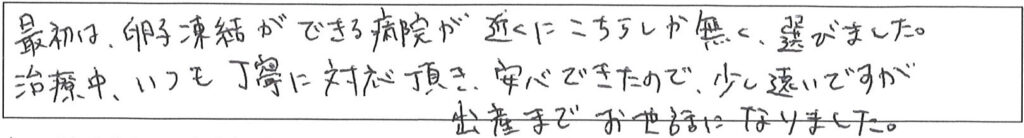 最初は、卵子凍結ができる病院が近くにこちらしか無く、選びました。
治療中、いつも丁寧に対応頂き、安心できたので、少し遠いですが
出産までお世話になりました。